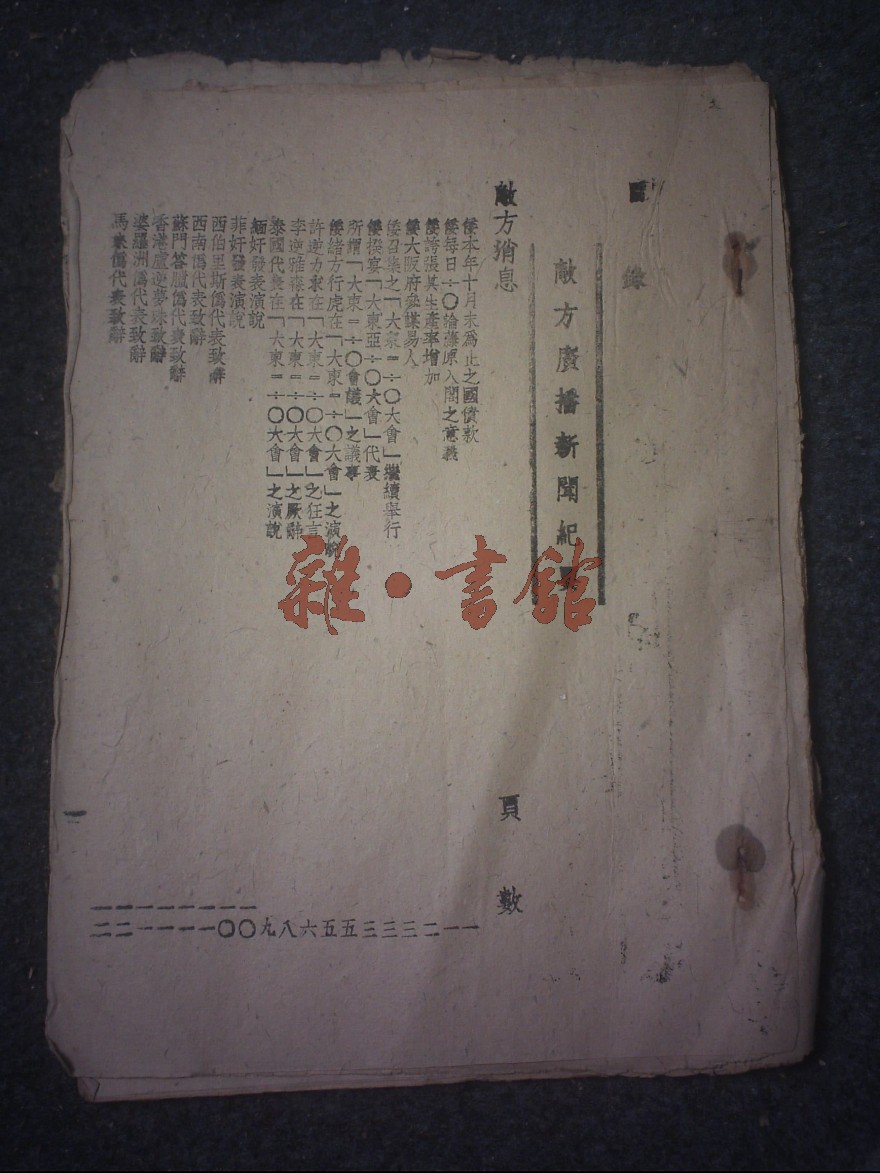 目錄
敵方廣播新聞紀要
敵方消息
頁數
倭本年十月末為止之國債款
倭每日÷〇論藤原入閣之意義
倭誇張其生產率增加
倭大阪府參謀易人
倭召集之「大東=÷〇大會」繼續舉行
倭撰宴「大東亞÷〇大會」代表
所謂「大東=÷〇會議」之議事
倭緒方行虎在「大東=÷〇大會」之演說
許逆力求在「大東=÷〇大會」之狂言
李逆雅森在「大東=÷〇大會」之厥辭
泰國代表在「大東=÷〇大會」之演說
緬奸發表演說
菲奸發表演說
西伯里斯偽代表致辭
西南偽代表致辭
蘇門答臘偽代表致辭
香港盧逆夢珠致辭
婆羅洲偽代表致辭
馬來偽代表致辭
一一二三三三五五六八九一〇一〇一一一一一一一二一二
雜·書館